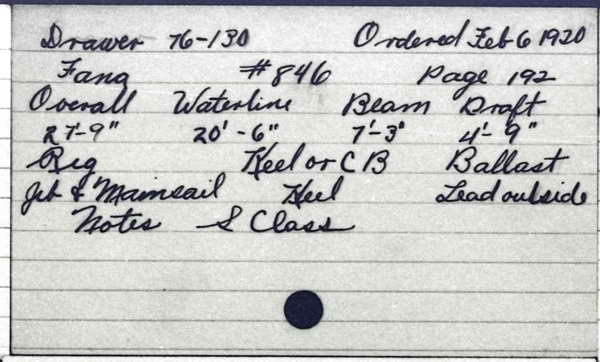 Drawer 76-130 Ordered Feb 6 1920
Fang #846 Page 192
Overall Waterline Beam Draft
27'-9" 20'-6" 7'-3" 4'-9"
Rig Keel or CB Ballast
Jib & Mainsail Keel Lead outside
Notes S Class